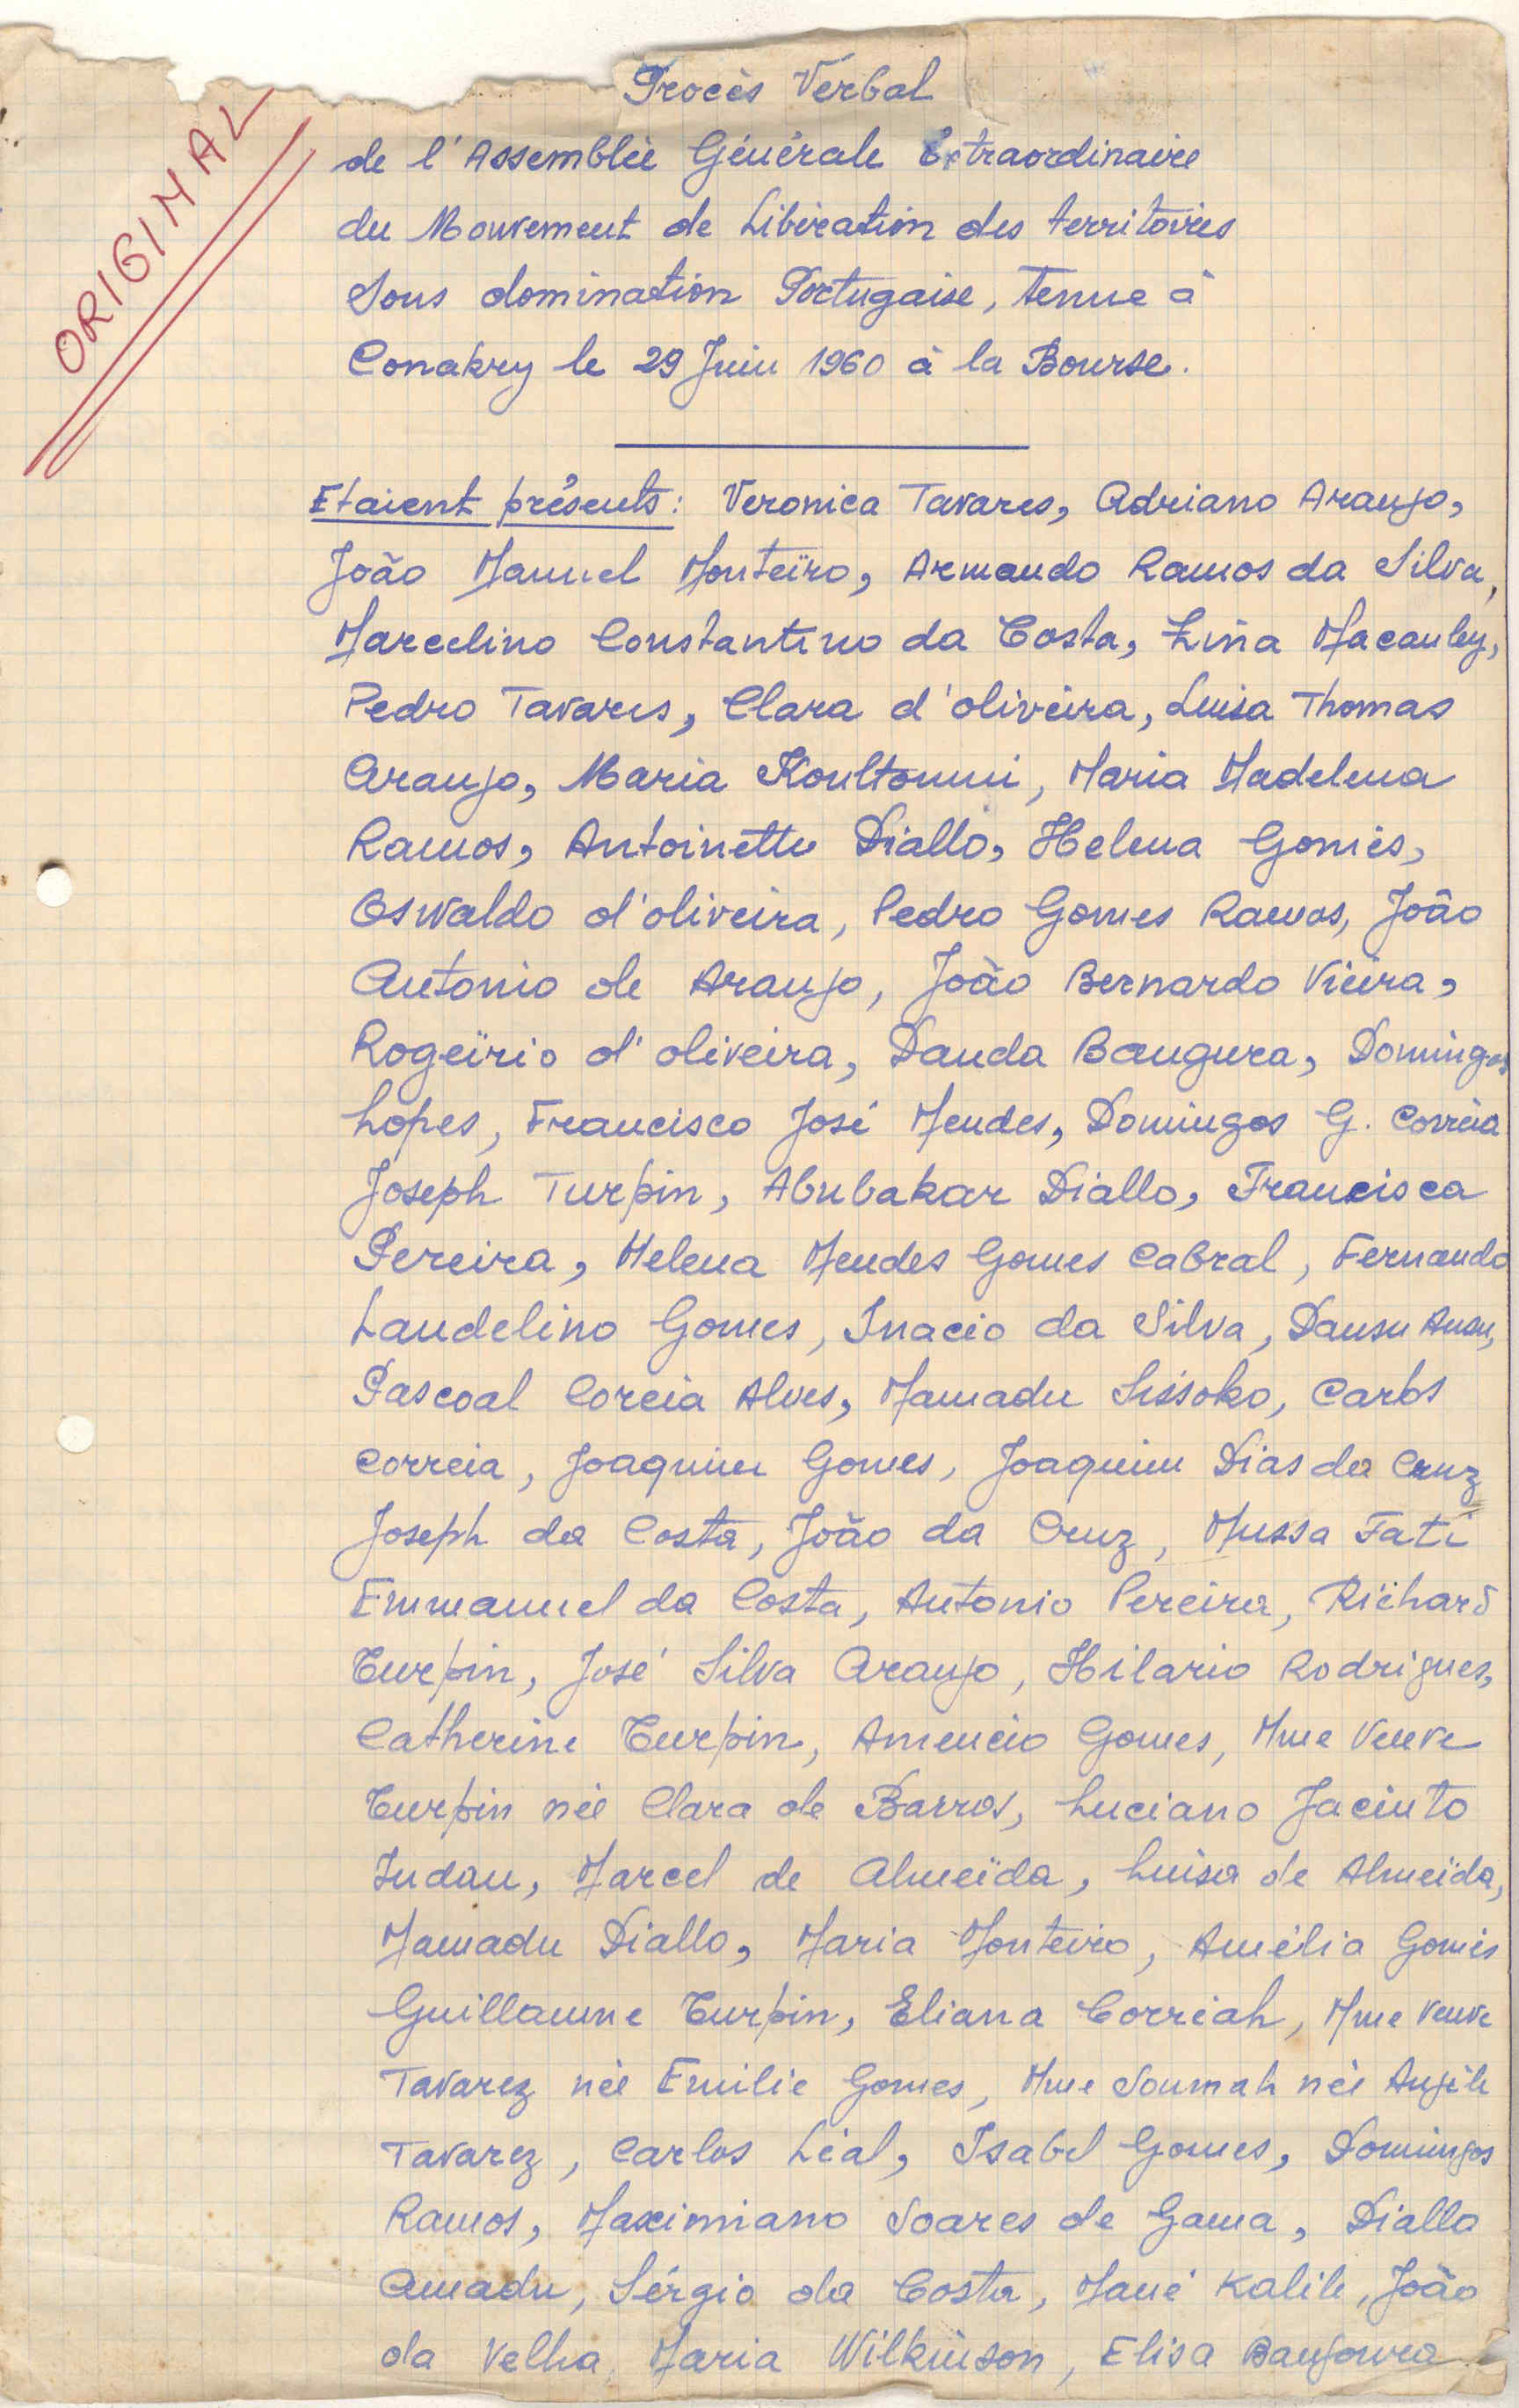 ORIGINAL
Procès Verbal
de l'Assemblée Générale Extraordinaire
du Mouvement de Libération des territoires
Sous domination Portugaise, tenue à
Conakry le 29 Juin 1960 à la Bourse.
Etaient présents: Veronica Tavares, Adriano Araujo,
João Manuel Monteïro, Armando Ramos da Silva,
Marcelino Constantino da Costa, Macauley,
Pedro Tavares, Clara d'oliveira, Luisa Thomas
Araujo, Maria Koultoumi, Maria Madelena
Ramos, Antoinette Diallo, Helena Gomès,
Oswaldo d'oliveira, Pedro Gomes Ramos, João
Antonio de Araujo, João Bernardo Vieira,
Rogeïrio d'oliveira, Dauda Bangura, Domingos
Lopes, Francisco José Mendes, Domingos G. Corrèia
Joseph Turpin, Abubakar Diallo, Francisca
Pereira, Helena Mendes Gomes Cabral, Fernando
Laudelino Gomes, Inacio da Silva, Dansu Ansu,
Pascoal Coreia Alves, Mamadu Sissoko, Carlos
Correia, Joaquim Gomes, Joaquim Dias da Cruz
Joseph da Costa, João da Cruz, Mussa Fati
Emmanuel da Costa, Antonio Pereira, Richard
Turpin, José Silva Araujo, Hilario Rodrigues,
Catherine Turpin, Amencio Gomes, Mme Veuve
Turpin née Clara de Barros, Luciano Jacinto
Indau, Marcel de Almeïda, Luisa de Almeïda,
Mamadu Diallo, Maria Monteiro, Amélia Gomis
Guillaume Turpin, Eliana Corréah, Mme Veuve
Tavarez née Emilie Gomes, Mme Soumah née Angèle
Tavarez, Carlos Léal, Isabel Gomes, Domingos
Ramos, Maximiano Soares de Gama, Diallo
Amadu, Sérgio da Costa, Mané Kalile, João
da Velha, Maria Wilkinson, Elisa Bangoura